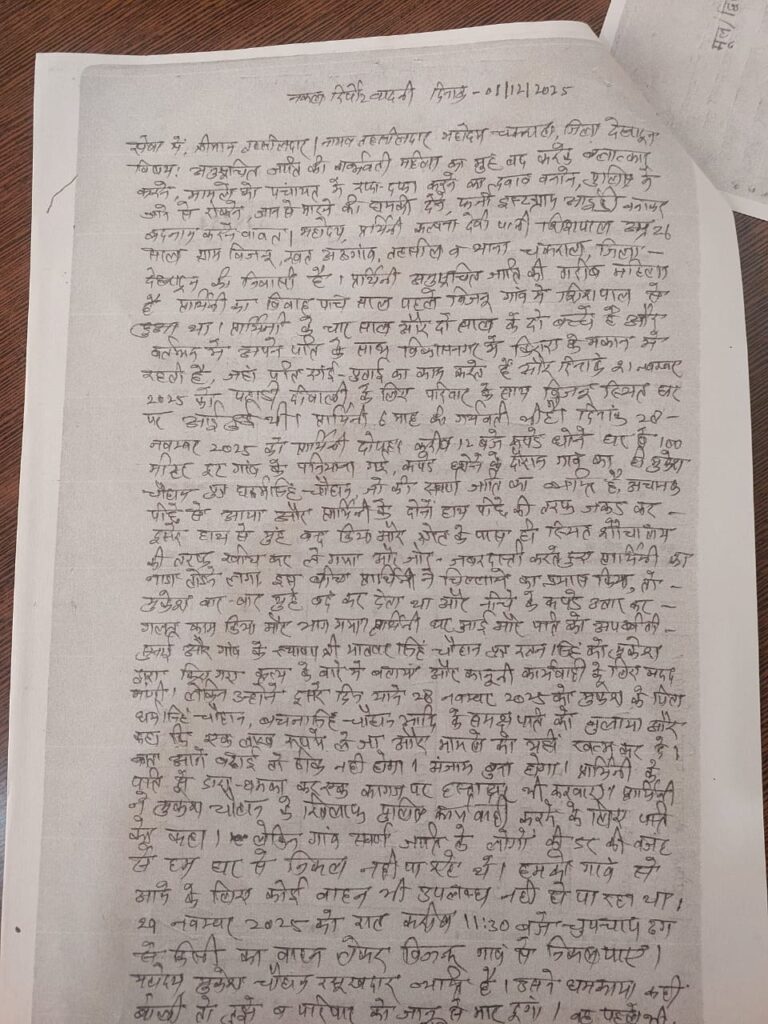 नकल रिपोर्ट वादनी दिनांक - 01/12/2025
सेवा में, श्रीमान तहसीलदार / नायब तहसीलदार महोदय चकराता, जिला देहरादून
विषय: अनुसूचित जाति की गर्भवती महिला का मुंह बंद करके बलात्कार
करने, मामले को पंचायत में रफा-दफा करने का दवाब बनाने, पुलिस में
जाने से रोकने, जान से मारने की धमकी देने, फर्जी इंस्टाग्राम आईडी बनाकर
बदनाम करने बावत। महोदय, प्रार्थिनी कल्पना देवी पत्नी उम्र 26
साल ग्राम बिजनू, खत अठगांव, तहसील व थाना चकराता, जिला -
देहरादून की निवासी है। प्रार्थिनी अनुसूचित जाति की गरीब महिला
है प्रार्थिनी का विवाह पांच साल पहले बिजनू गांव में से
हुआ था। प्रार्थिनी के चार साल और दो साल के दो बच्चे है और
वर्तमान में अपने पति के साथ विकासनगर में किराए के मकान में
रहती है, जहां पति रंगाई-पुताई का काम करते हैं और दिनांक 21 नवम्बर
2025 को पहाड़ी दीवाली के लिए परिवार के साथ बिजनू स्थित घर
पर आई हुई थी। प्रार्थिनी 6 माह की गर्भवती भी है। दिनांक
नवम्बर 2025 को प्रार्थिनी दोपहर करीब 12 बजे कपडे धोने घर से 100
मीटर दूर गांव के गई, कपडे धोने के दौरान गांव का ही मुकेश
चौहान पुत्र चौहान, जो की स्वर्ण जाति का व्यक्ति है, अचानक
पीछे से आया और प्रार्थिनी के दोनों हाथ पीछे की तरफ जकड कर -
दूसरे हाथ से मुंह बन्द किया और के पास ही स्थित शौचालय
की तरफ खींच कर ले गया और जोर-जबरदस्ती करते हुए प्रार्थिनी का
नाडा लगा, इस बीच प्रार्थिनी ने चिल्लाने का प्रयास किया, तो -
मुकेश बार-बार मुंह बंद कर देता था और नीचे के कपडे उतार कर -
गलत काम किया और भाग गया। प्रार्थिनी घर आई और पति को आपबीती -
सुनाई और गांव के स्याणा श्री सिंह चौहान पुत्र सिंह को मुकेश
द्वारा किए गए कृत्य के बारे में बताया और कानूनी कार्यवाही के लिए मदद
मांगी। लेकिन उन्होंने दूसरे दिन यानि 28 नवम्बर 2025 को मुकेश के पिता
चौहान, चौहान आदि के समक्ष पति को बुलाया और
कहा कि एक लाख रूपये ले जा और मामले को यहीं खत्म कर दे।
बात आगे बढाई तो ठीक नहीं होगा। अंजाम बुरा होगा। प्रार्थिनी के
पति से डरा-धमका कर एक कागज पर हस्ताक्षर भी करवाए। प्रार्थिनी
ने मुकेश चौहान के खिलाफ पुलिस कार्यवाही करने के लिए पति
को कहा। लेकिन गांव स्वर्ण जाति के लोगों की डर की वजह
से हम घर से निकल नहीं पा रहे थे। हमको गांव से
आने के लिए कोई वाहन भी उपलब्ध नहीं हो पा रहा था।
29 नवम्बर 2025 को रात करीब 11:30 बजे चुपचाप ढंग
से किसी का वाहन लेकर बिजनू गांव से निकल पाए।
महोदय मुकेश चौहान रसूखदार व्यक्ति है। उसने धमकाया कहीं
तो तुझे व परिवार को जान से मार दूंगा। वह पहले भी